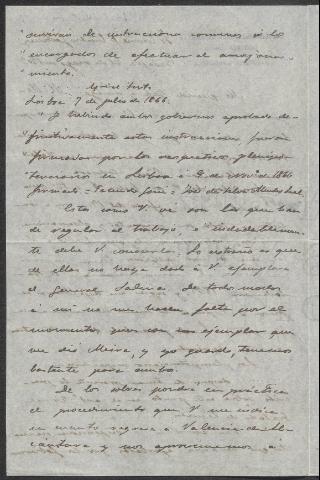 servirán de instrucciones comunes á los
encargados de efectuar el amojona-
miento.
Lisboa 7 de julio de 1866.
"Y habiendo ambos gobiernos aprobado de-
finitivamente estas instrucciones fueron
firmadas por los respectivos plenipo-
tenciarios en Lisboa á de 1866
firmado =
Estas como V. ve son las que han
de regular el trabajo, é indudablemen-
te debe V. conocerlas. Lo extraño es que
de ellas no haya dado á V. ejemplares
el General De todos modos
á mi no me hacen falta por el
momento, pues con un ejemplar que
me dió Meira, y yo guardo, tenemos
bastante para ambos.
De los otros pondré en práctica
el procedimiento que V. me indica
en cuanto regrese á Valencia de Al-
cántara y nos aproximemos á